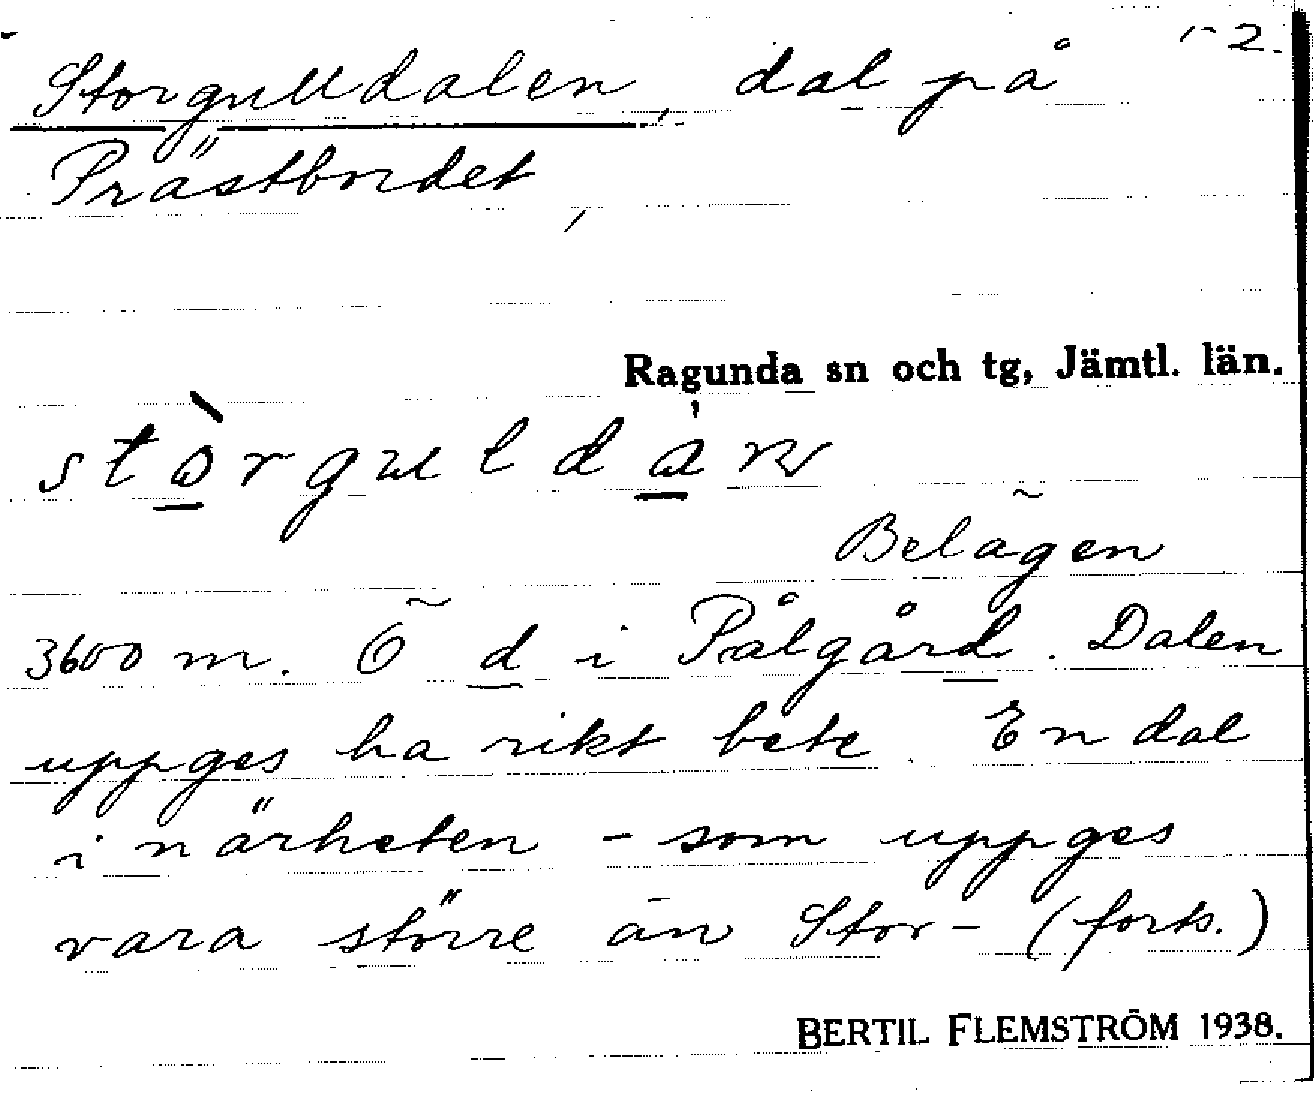 1-2.
Storgulldalen, dal på
Prästbordet,
Ragunda sn och tg, Jämtl. län.
Belägen
3600 m. Ö d i Pålgård. Dalen
uppges ha rikt bete. En dal
i närheten - som uppges
vara större än Stor- (forts.)
BERTIL FLEMSTRÖM 1938.